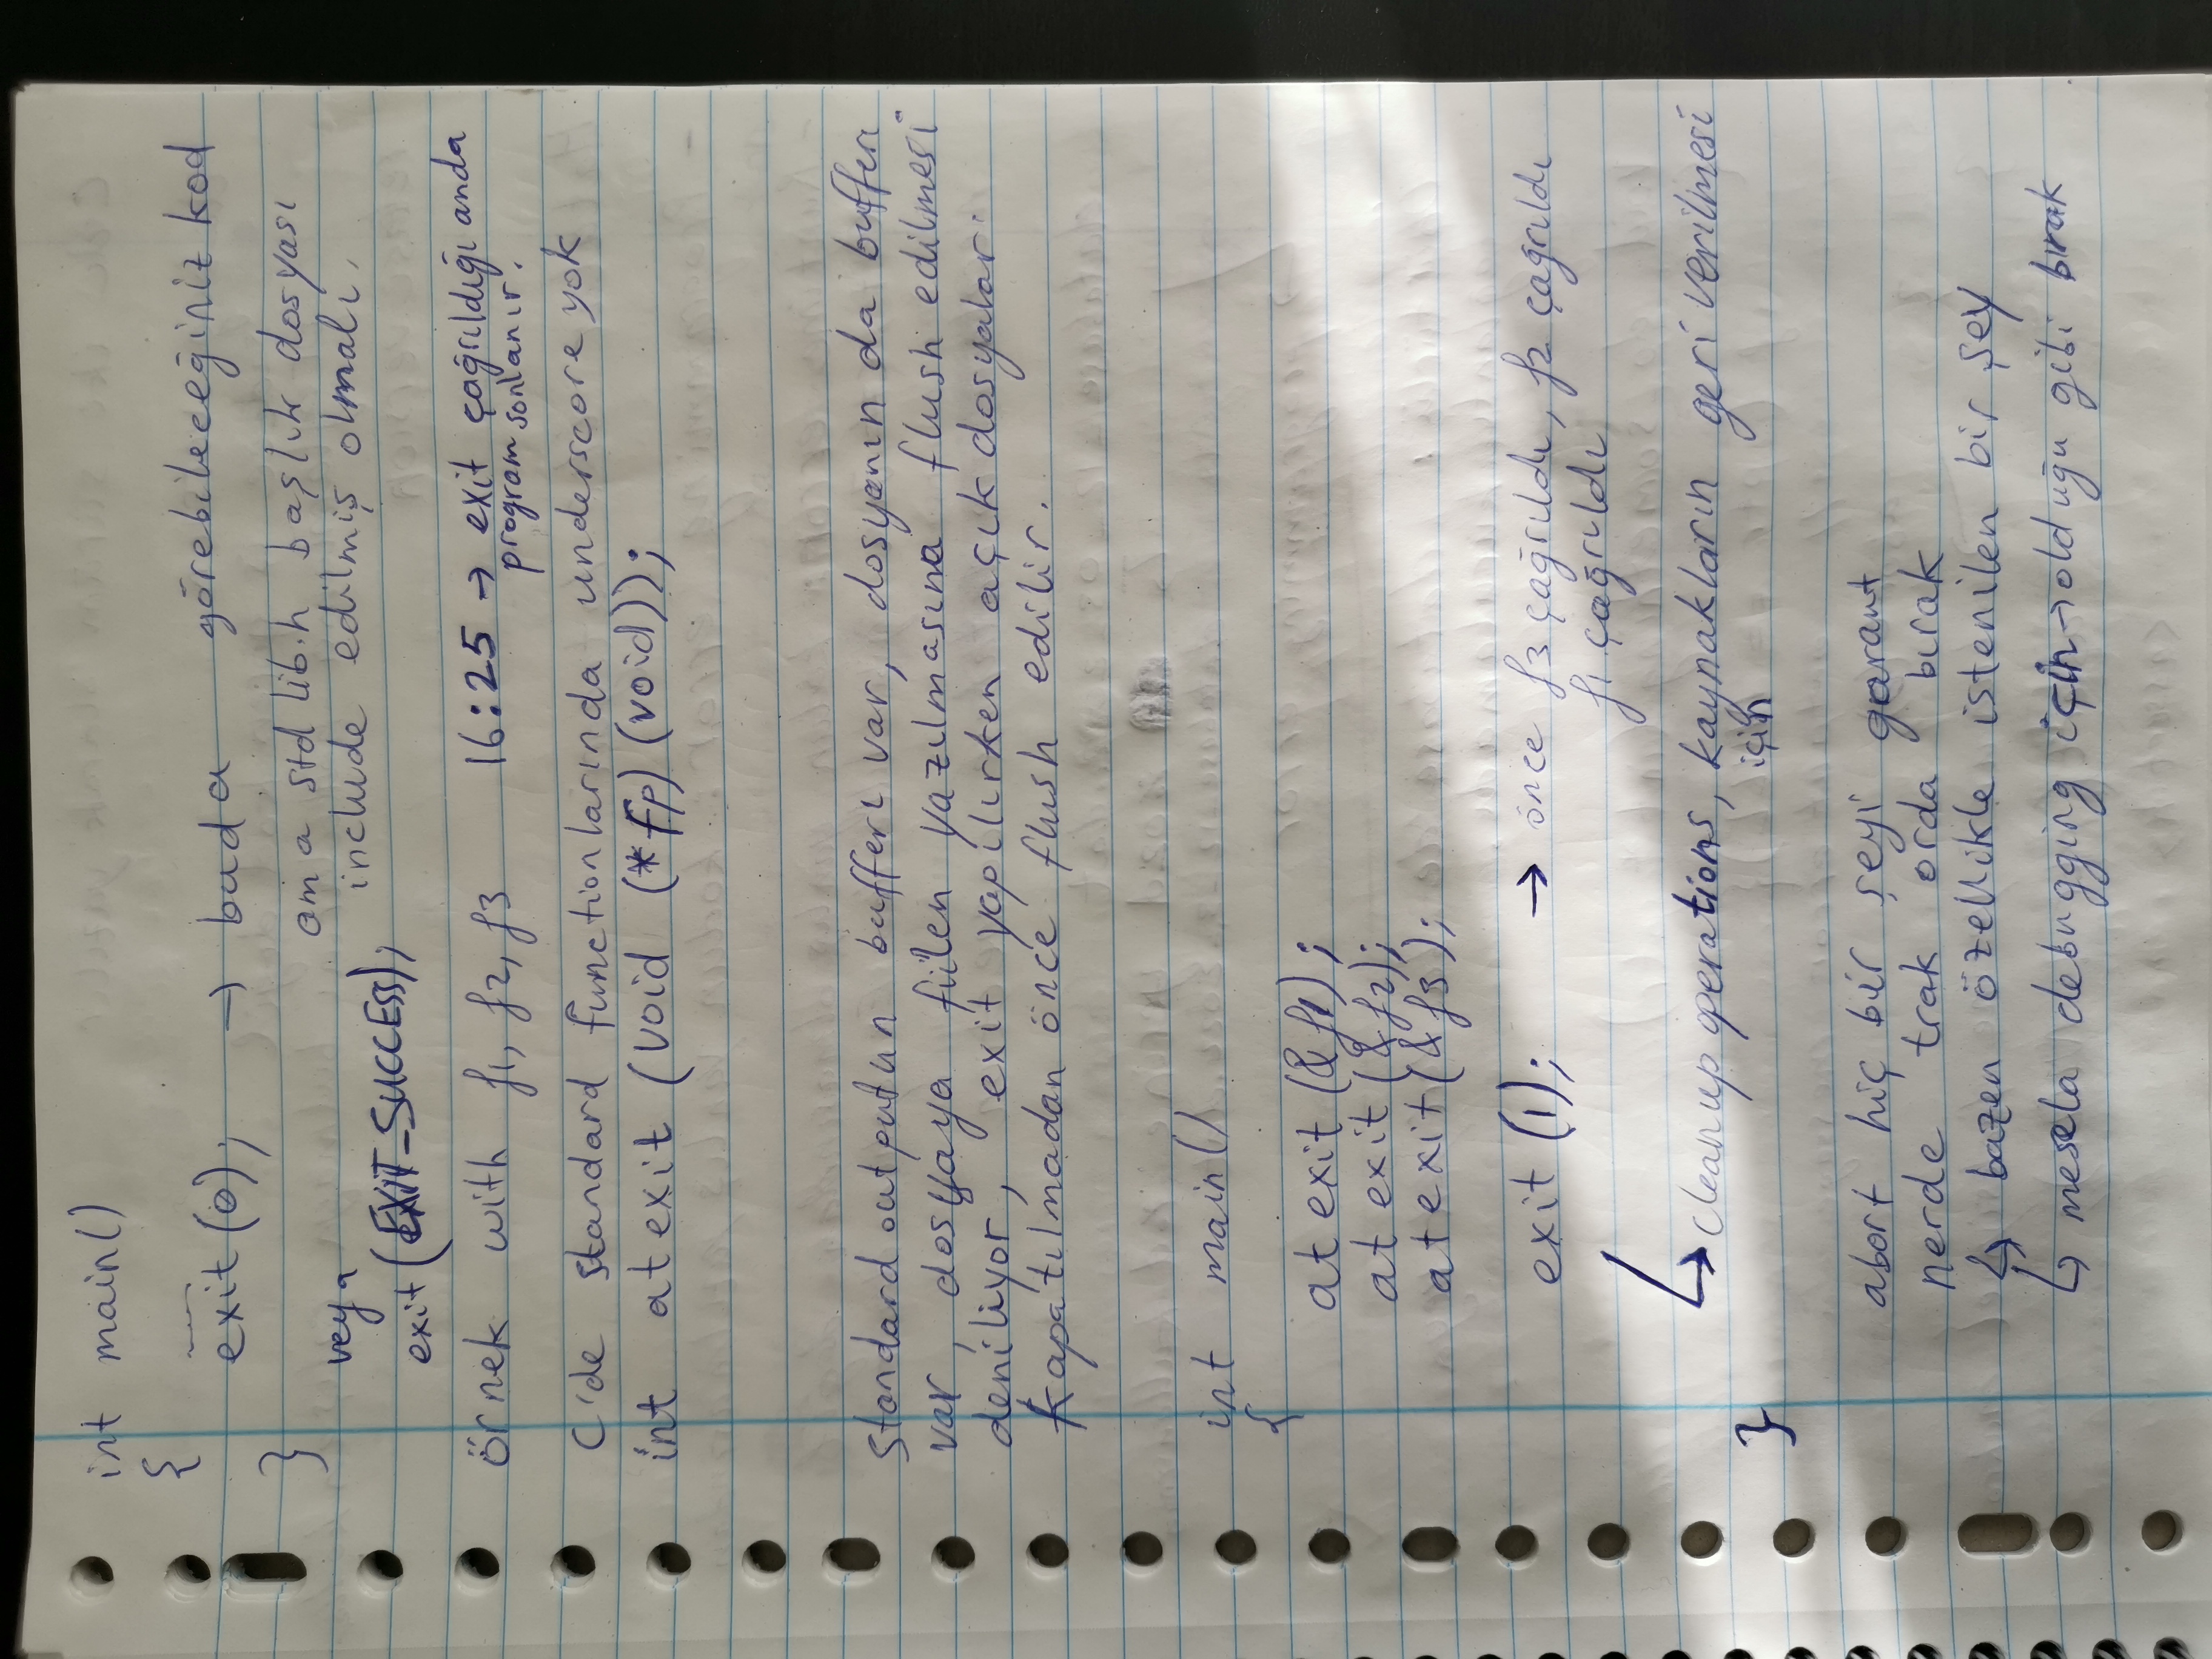 int main()
{
exit(0); → buda görebileceğiniz kod
} ama stdlib.h başlık dosyası
veya include edilmiş olmalı.
exit(EXIT_SUCCESS);
örnek with f1, f2, f3 16:25 → exit çağrıldığı anda
program sonlanır.
C'de standard functionlarında underscore yok
int atexit (void (*fp) (void));
standard outputun bufferı var, dosyanın da bufferı
var, dosyaya fiilen yazılmasına flush edilmesi
deniliyor, exit yapılırken açık dosyalar
kapatılmadan önce flush edilir.
int main()
{
atexit(&f1);
atexit(&f2);
atexit(&f3);
exit(1); → önce f3 çağrıldı, f2 çağrıldı
f1 çağrıldı
↳ cleanup operations, kaynakların geri verilmesi
için
}
abort hiç bir şeyi garant
nerde trak orda bırak
↳ bazen özellikle istenilen bir şey
↳ mesela debugging için → olduğu gibi bırak